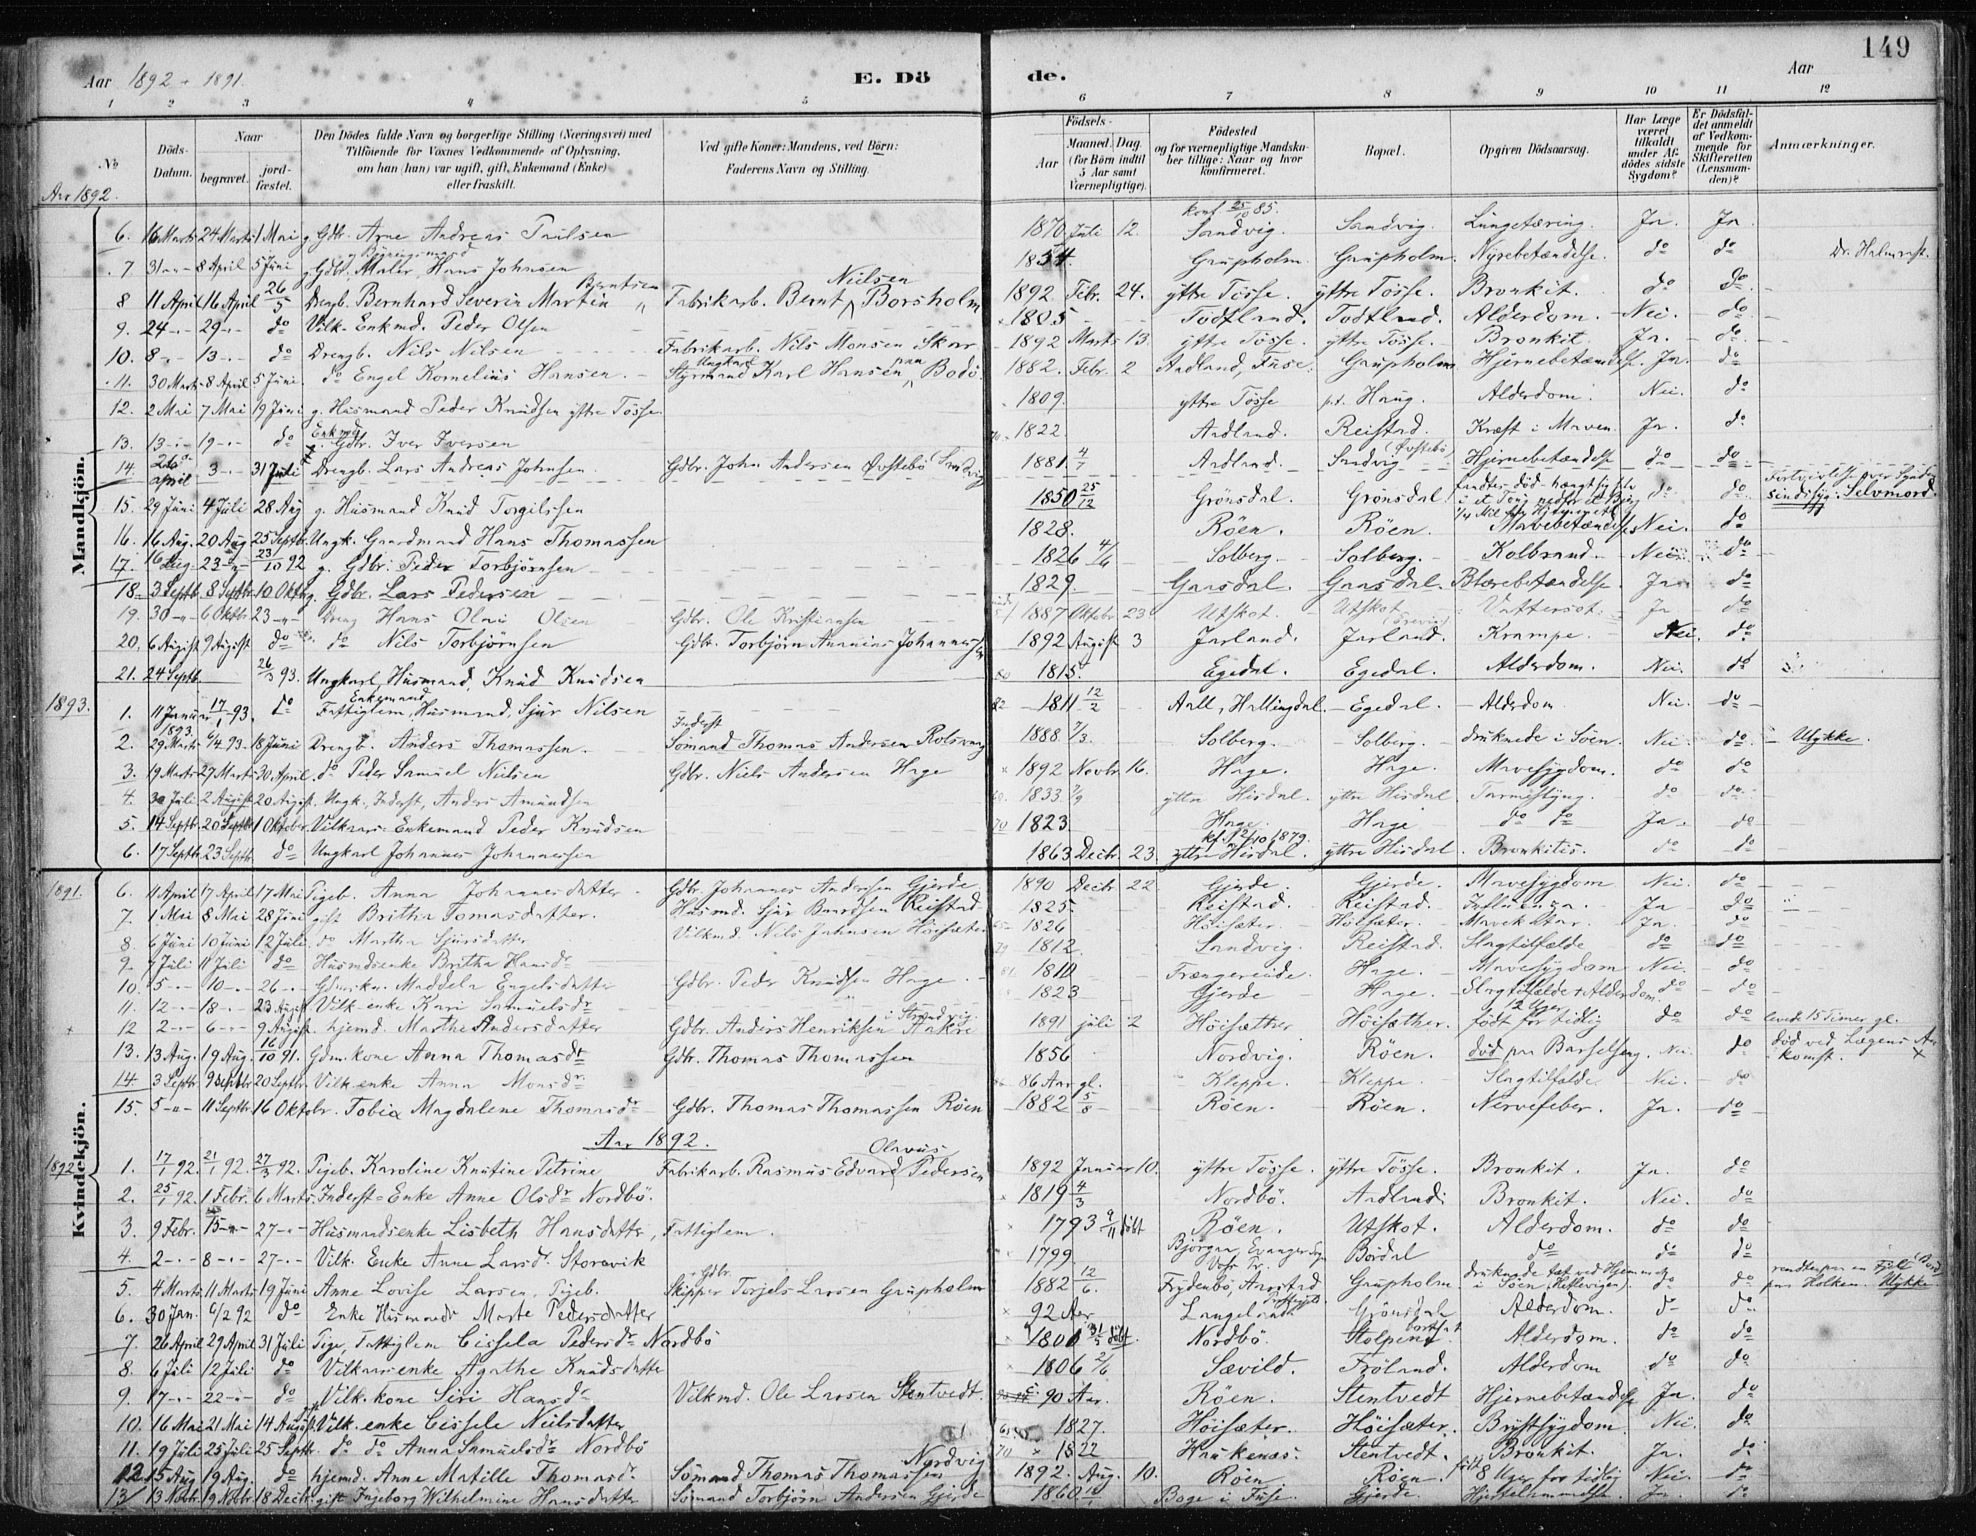 149
Aar 1892 - 1891. E. Dö de. Aar
1 2 3 4 5 6 7 8 9 10 11 12
No Döds-Datum. Naar begravet. jord-fæstet. Den Dödes fulde Navn og borgerlige Stilling (Næringsvei) med Tilföiende for Voxnes Vedkommende af Oplysning, om han (hun) var ugift, gift, Enkemand (Enke) eller fraskilt. Ved gifte Koner: Mandens, ved Börn: Faderens Navn og Stilling. Födsels- Aar Maaned. Dag. (for Börn indtil 5 Aar samt Værnepligtige). Födested og for værnepligtige Mandskaber tillige: Naar og hvor konfirmeret. Bopæl. Opgiven Dödsaarsag. Har Læge været tilkaldt under Afdödes sidste Sygdom? Er Dödsfaldet anmeldt af Vedkommende for Skifteretten (Lensmanden)? Anmærkninger.
Aar 1892.
Mandkjön.
6. 16 Marts 24 Marts 1 Mai g. Gdbr. Arne Andreas Paulsen 1870 Juli 12. konf 25/10 85. Sandvig. Sandvig. Lungetæring. Ja. Ja
7 31 -"- 8 April 5 Juni g. Gdbr. Maler, Hans Johnsen 1854. Grupholm. Grupholm. Nyrebetændelse. do do
8 11 April 16 April 26/5 Drengb. Bernhard Severin Martin Berntsen Fabrikarb. Bernt Nielsen Borsholm 1892 Febr. 24. yttre Tösse. yttre Tösse. Bronkit. do do
9. 24 -"- 29 -"- do Vilk. Enkmd. Peder Olsen 1805 Todtland. Todtland. Alderdom. Nei. do
10. 8 -"- 13 -"- do Drengb. Nils Nilsen Fabrikarb. Nils Monsen Skaar 1892 Marts 13. yttre Tösse. yttre Tösse. Bronkit. Ja. do
11. 30 Marts 8 April 5 Juni do Engel Kornelius Hansen Styrmand Ungkarl Karl Hansen paa Bodö. 1882. Febr. 2 Aadland, Fuse. Grupholm Hjernebetændelse. Ja. do
12. 2 Mai 7 Mai 19 Juni g. Husmand Peder Knudsen yttre Tösse 1809. yttre Tösse p.t. Haug. Alderdom. Nei. do
13. 13 -"- 19 -"- do Enkmd Gdbr. Iver Iversen 1822. Aadland. Reistad. Kræft i Maven Ja. do
14. 26 april 3 -"- 31 Juli Drengb. Lars Andreas Johnsen Gdbr. John Andersen Övstebö (Sandvig 1881. 4/7 Aadland. Sandvig (Övstebö) Hjernebetændelse do do
15. 29 Juni 4 Juli 28 Aug g. Husmand Knud Torgilssen 1850 25/12 Grönsdal. Grönsdal fandtes död - hængt sig selv i et Toug nedfor et Berg 1/4 Mil fra Hjemmet. do do Fortvivlelse over Synd. sindssyg. Selvmord.
16. 16 Aug. 20 Aug 25 Septb. Ungk. Gaardmand Hans Thomassen 1828. Röen. Röen. Mavebetændelse Nei. do
17. 16 Aug 23 -"- 23/10 92 g. Gdbr. Peder Torbjörnsen 1826 4/6 Solberg. Solberg. Kolbrand. Nei. do
18. 3 Septb. 8 Septb. 10 Oktb. g. Gdbr. Lars Pedersen 1829. Gaasdal. Gaasdal. Blærebetændelse Ja. do
19. 30 -"- 6 Oktbr. 23 -"- Dreng Hans Olai Olsen Gdbr. Ole Kristiansen 1887 Oktobr. 23 Utskot. Utskot Vattersot. Ja. do
20. 6 August 9 August do do Nils Torbjörnsen Gdbr. Torbjörn Ananias Johannessen 1892 August 3 Jarland. Jarland. Krampe. Nei. do
21. 24 Septb. 26/3 93. Ungkarl, Husmand, Knud Knudsen 1815. Egedal. Egedal. Alderdom. Nei. do
1893.
1. 11 Januar 1893. 17/1 93. do Fattiglem, Enkemand Husmand, Sjur Nilsen 82 1811 12/2 Aall, Hallingdal. Egedal. Alderdom. Nei. do
2. 29 Marts 6/4 93. 18 Juni Drengb. Anders Thomassen. Inderst Sömand Thomas Andersen Rotsvang 1888 7/3. Solberg. Solberg. druknede i Söen. Nei. do. Ulykke.
3. 19 Marts 27 Marts 30 April. do Peder Samuel Nielsen Gdbr. Niels Andersen Hage 1892 Novbr. 16. Hage. Hage. Mavesygdom. do do
4. 30 Juli 2 August 20 August. Ungk. Inderst, Anders Amundsen 1833. 7/9 yttre Hisdal. yttre Hisdal. Tarmeslyng. do do
5. 14 Septb. 20 Septb. 1 Oktober. Vilkaars-Enkemand Peder Knudsen 70 1823. Hage. Hage do do Ja. do
6. 17 Septb. 23 Septb. do Ungkarl Johannes Johannessen 1863 Decbr. 23. kf. 12/10 1879. yttre Hisdal. yttre Hisdal. Bronkitis. do do
1891.
Kvindekjön.
6. 11 April 17 April 17 Mai Pigeb. Anna Johannesdatter Gdbr. Johannes Andersen Gjerde 1890 Decbr. 22. Gjerde. Gjerde. Mavesygdom Nei. do
7. 1 Mai 8 Mai 28 Juni gift Britha Tomasdatter. Husmd. Sjur Baardsen Reistad 1825. Reistad. Reistad. Influenza. Ja do
8. 6 Juni 10 Juni 12 Juli do Martha Sjursdatter Vilkmd. Nils Johnsen Höisæter 1826 Höisæter. Höisæter. Mavekatar. Ja. do
9. 7 Juli 11 Juli do Husmdsenke Britha Hansdr 1812. Sandvig. Reistad. Slagtilfælde do do
10. 5 -"- 10 -"- 26 -"- Gdmsko. Maddela Engelsdatter Gdbr. Peder Knudsen Hage 1810 Frængereide. Hage. Mavesygdom Nei. do
11. 12 -"- 18 -"- 23 August Vilk. enke Kari Samuelsdr 1823 Gjerde Hage. Slagtilfælde & Alderdom. do do
12 2 -"- 6 -"- 9 August. hjemd. Marthe Andersdatter Gdbr. Anders Henriksen i Strandvig. Aakre 1891 juli 2 Höisæther Höisæther. 12 Uger födt for tidlig do do levede 15 Timer gl.
13. 13 Aug. 19 Aug. 16/10 91. Gdm. kone Anna Thomasdr Gdbr. Thomas Thomassen 1856 Nordvig. Röen. död paa Barselseng. Nei. do död ved Lægens An komst.
14 3 Septbr 9 Septbr 20 Septbr. Vilk. enke Anna Monsdr 86 Aar gl. Kleppe. Kleppe. Slagtilfælde. Nei. do
15. 5 -"- 11 Septbr 16 Oktobr. Tobia Magdalene Thomasdr Gdbr. Thomas Thomassen Röen 1882 5/8 Röen. Röen. Nervefeber. Ja. do
Aar 1892.
1892
1. 17/1 92. 21/1 92. 27/3 92. Pigeb. Karoline Knutine Petrine Fabrikarb. Rasmus Edvard Olavus Pedersen 1892 Januar 10. yttre Tösse. yttre Tösse. Bronkit. Ja. do
2. 25/1 92. 1 Febr. 6 Marts. Inderst-Enke Anne Olsdr Nordbö. 1819 4/3 Nordbö. Aadland. Bronkit. Nei. do
3. 9 Febr. 15 -"- 27 -"- Husmandsenke Lisbeth Hansdatter, Fattiglem. 1793 9/11 döbt Röen. Utskot. Alderdom. do do
4. 2 -"- 8 -"- 27 -"- Vilk. Enke Anne Larsdr Storevik 1799 Björgan, Evanger Sogn Voss Pr. Bördal do do do
5. 4 Marts 11 Marts 19 Juni Anne Lovise Larsen, Pigeb. Skipper & Gdbr. Torjels Larsen Grupholm 1882 12/6. Frydenbö, Aarstad Grupholm. druknede tæt ved Hjemmet i Söen (Hetlevigen). do do paa Holken. Ulykke
6. 30 Jan. 6/2 92 do Enke Husmandr Marte Pedersdatter 92 Aar Langeland Grönsdal Alderdom. do do
7. 26 April 29 April 31 Juli Pige, Fattiglem Cissela Pedersdr Nordbö 1800 31/5 döbt. Nordbö. Stolpen Alderdom. do do
8. 6 Juli 12 Juli do Vilkaarsenke Agathe Knudsdatter 1806 2/6 Sævild. Fröland. Alderdom do do
9. 17 -"- 22 -"- do Vilk. kone Siri Hansdr Vilkmd. Ole Larsen Stentvedt. 90 Aar. Röen. Stentvedt Hjernebetændelse Ja. do
10. 16 Mai 21 Mai 14 August Vilk. enke Cissele Nielsdatter 1827. Höisæter. Höisæter. Brystsygdom. Nei. do
11. 19 Juli 25 Juli 25 Septb. do do Anna Samuelsdr Nordbö 70 1822 Haukenæs. Stentvedt. Bronkit. Ja. do
12 15 Aug. 19 Aug. do hjemd. Anne Matille Thomasdr. Sömand Thomas Thomassen Nordvig 1892. Aug. 10. Röen Röen födt 8 Uger for tidlig Nei. do
13 13 Novbr. 19 Novbr. 18 Decbr. gift Ingeborg Wilhelmine Hansdatter Sömand Torbjörn Andersen Gjerde 1860 Boge i Fuse. Gjerde. Ja. do